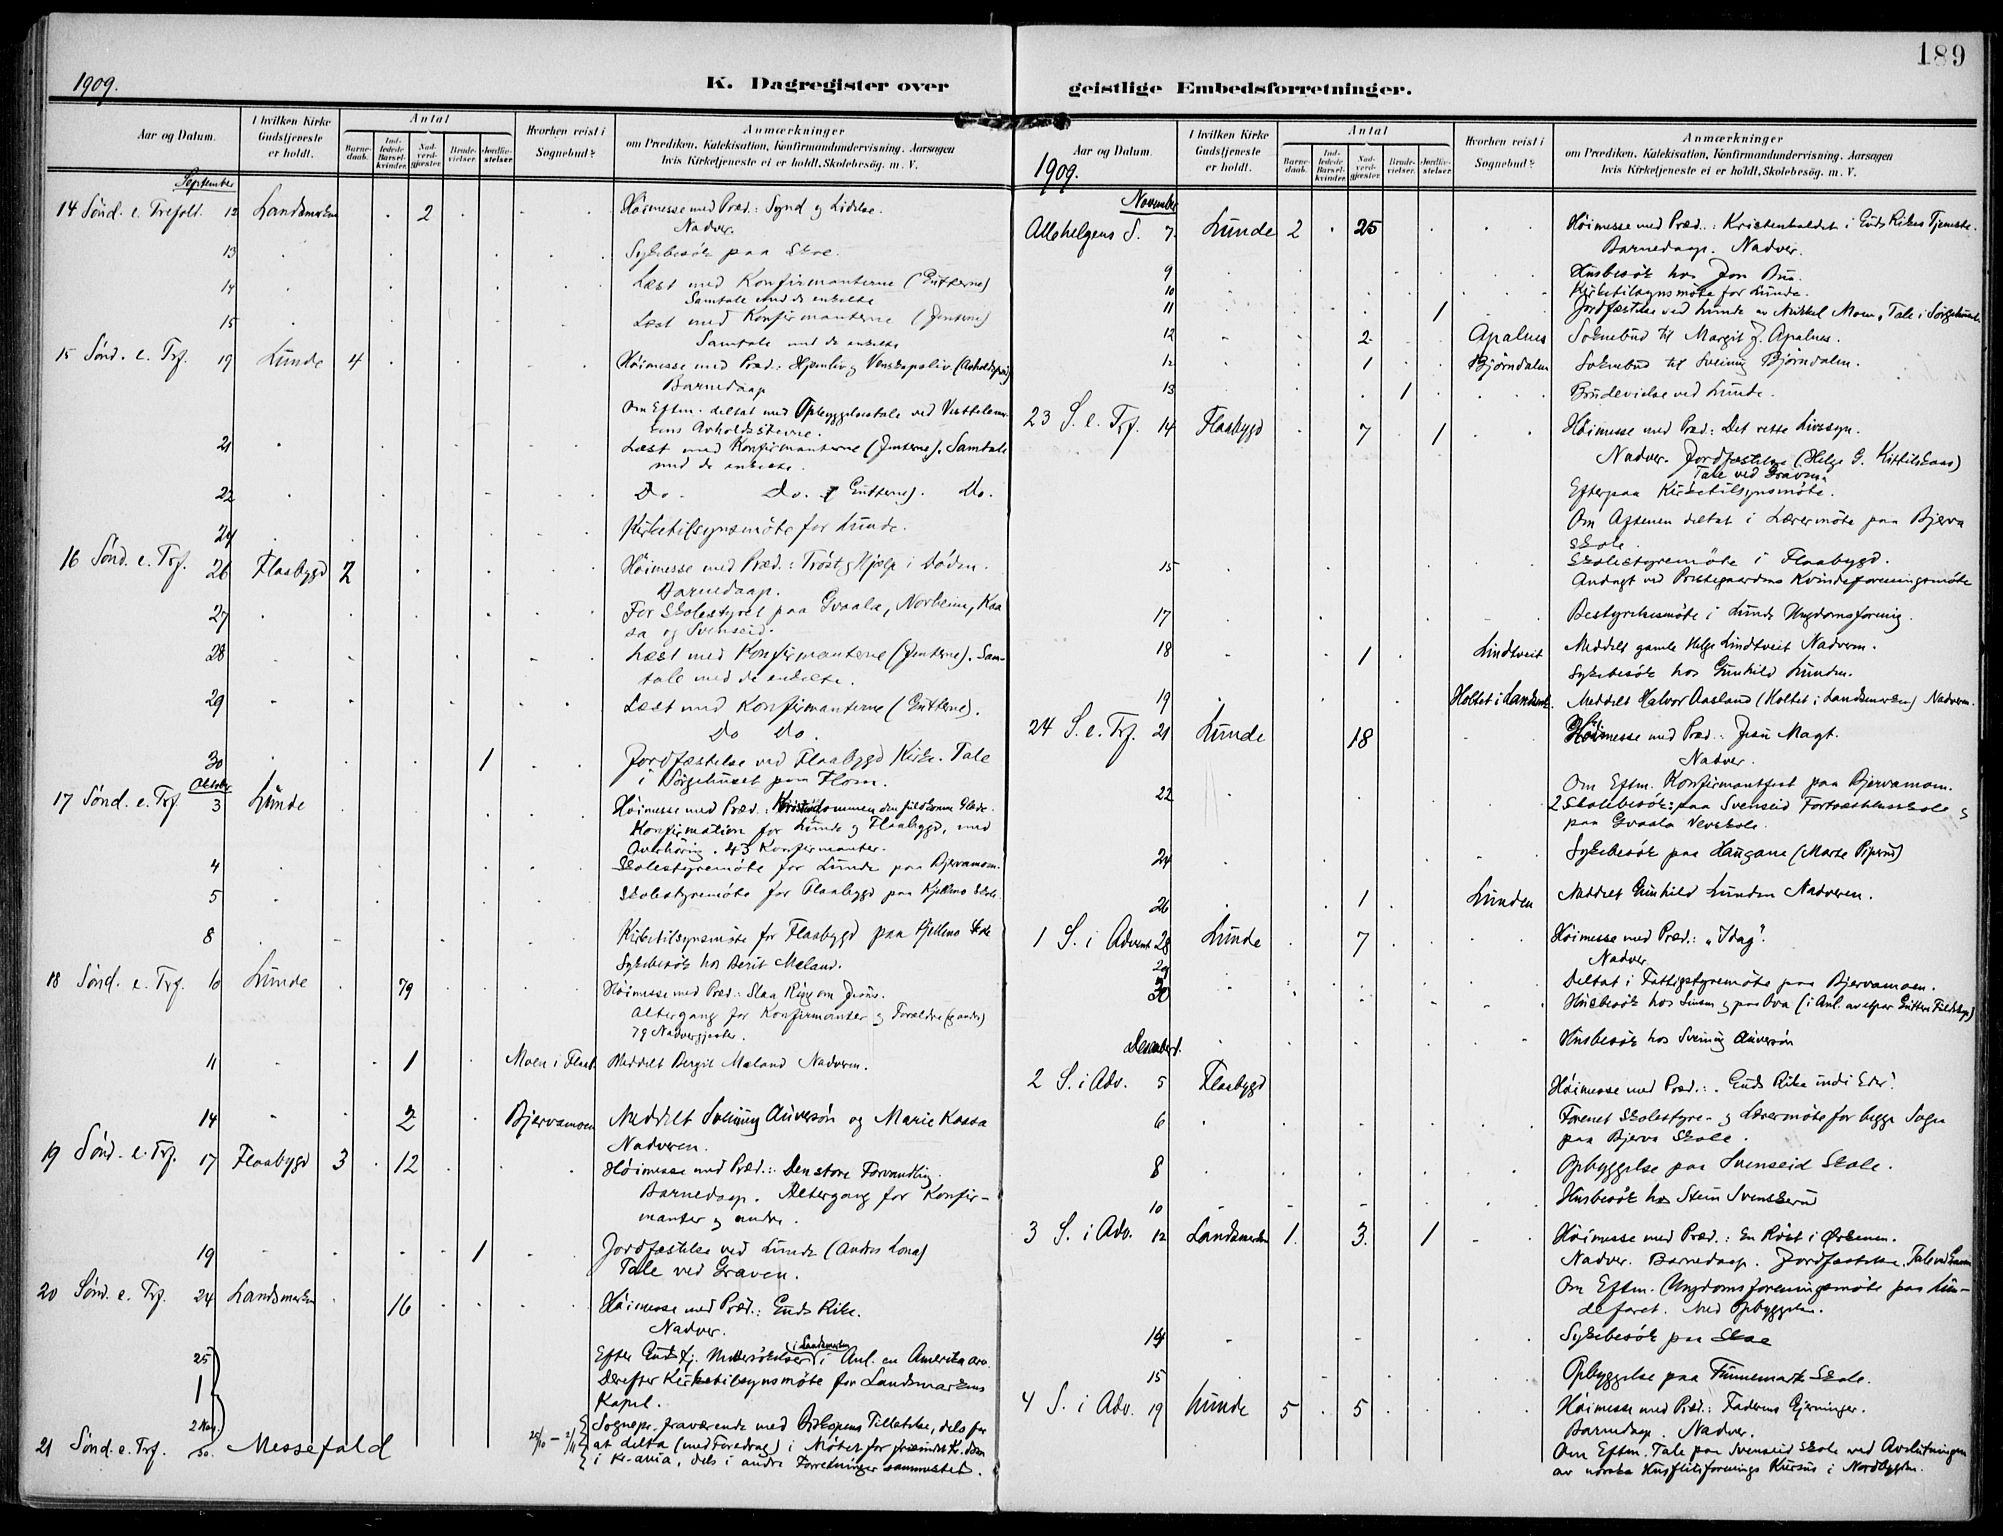 189
1909.
K. Dagregister over
geistlige Embedsforretninger.
Aar og Datum.
I hvilken Kirke Gudstjeneste er holdt.
Antal
Barnedaab.
Indledede Barselkvinder.
Nadverdgjester.
Brudevielser.
Jordfæstelser
Hvorhen reist i Sognebud?
Anmærkninger
om Prædiken, Katekisation, Konfirmandundervisning. Aarsagen
hvis Kirketjeneste ei er holdt, Skolebesøg. m. V.
September
14 Sønd. e. Trefolt. 12 Landsmarken 2 Høimesse med Præd.: Synd og Lidelse.
Nadver.
13 Sykebesøk paa Skoe.
14 Læst med Konfirmanterne (Gutterne)
Samtale med de enkelte
15 Læst med Konfirmanterne (Jenterne)
Samtale med de enkelte
15 Sønd. e. Trf. 19 Lunde 4 Høimesse med Præd.: Hjemliv og Venskapsliv.
Barnedaap
Om Eftm. deltat med Opbyggelsestale ved
Avholdsstevne.
21 Læst med Konfirmanterne (Jenterne). Samtale
med de enkelte.
22 Do. Do. (Gutterne). Do.
24 Kirketilsynsmøte for Lunde.
16 Sønd. e. Trf. 26 Flaabygd 2 Høimesse med Præd.: Trøst og Hjælp i Døden.
Barnedaap.
27 For Skolestyret paa Gvaala, Norheim, Kaa
sa og Svenseid.
28 Læst med Konfirmanterne (Jenterne). Sam-
tale med de enkelte.
29 Læst med Konfirmanterne (Gutterne).
Do Do.
30 1 Jordfæstelse ved Flaabygd Kirke. Tale
i Sørgehuset paa Flom.
Oktober
17 Sønd. e. Trf. 3 Lunde Høimesse med Præd.: Kristendommen den fuldkomne Glæde.
Konfirmation for Lunde og Flaabygd, med
Overhøring. 43 Konfirmanter.
4 Skolestyremøte for Lunde paa Bjervamoen.
5 Skolestyremøte for Flaabygd paa Kjelleno Skole.
8 Kirketilsynsmøte for Flaabygd paa Kjelleno Skole
Sykebesøk hos Berit Meland.
18 Sønd. e. Trf. 10 Lunde 79 Høimesse med Præd.: Slaa Ring om Jesus.
Altergang for Konfirmanter og Forældre (og andre)
79 Nadvergjester.
11 1 Moen i Flaab. Meddelt Bergit Meland Nadveren.
14 2 Bjervamoen Meddelt Sveinung Auversøn og Marie Kaasa
Nadveren.
19 Sønd. e. Trf. 17 Flaabygd 3 12 Høimesse med Præd.: Den store Forvandling.
Barnedaap. Altergang for Konfir-
manter og andre.
19 1 Jordfæstelse ved Lunde (Andres Lona)
Tale ved Graven.
20 Sønd. e. Trf. 24 Landsmarken 16 Høimesse med Præd.: Guds Rike.
Nadver.
i Landsmarken
Efter Gudstj. Undersøkelser i Anl. en Amerika arv.
Derefter Kirketilsynsmøte for Landsmarkens
Kapel.
25
1
2 Nov.
21 Sønd. e. Trf. Messefald 25/10 – 2/11 Sognepr. fraværende med Biskopens Tillatelse, dels for
at delta (med Foredrag) i Møtet for frisindet Kr.dom
i Kr.ania, dels i andre Forretninger sammesteds.
Aar og Datum.
1909.
I hvilken Kirke Gudstjeneste er holdt.
Antal
Barnedaab.
Indledede Barselkvinder.
Nadverdgjester.
Brudevielser.
Jordfæstelser
Hvorhen reist i Sognebud?
Anmærkninger
om Prædiken, Katekisation, Konfirmandundervisning. Aarsagen
hvis Kirketjeneste ei er holdt, Skolebesøg. m. V.
November
Allehelgens S. 7 Lunde 2 25 Høimesse med Præd.: Kristenkaldet i Guds Rikes Tjeneste.
Barnedaap. Nadver.
9 Husbesøk hos Jon Bua.
10 Kirketilsynsmøte for Lunde.
11 1 Jordfæstelse ved Lunde av Mikkel Moen, Tale i Sørgehuset
12 2 Apalnes Soknebud til Margit J. Apalnes.
12 1 Bjørndalen Soknebud til Sveinung Bjørndalen.
13 1 Brudevielse ved Lunde.
23 S. e. Trf. 14 Flaabygd 7 1 Høimesse med Præd.: Det rette Livssyn.
Nadver. Jordfæstelse (Helge G. Kittilskaas)
Tale ved Graven.
Efterpaa Kirketilsynsmøte.
Om Aftenen deltat i Lærermøte paa Bjerva
Skole.
15 Skolestyremøte i Flaabygd.
Andagt ved Prestegaardens Kvindeforeningsmøte
17 Bestyrelsesmøte i Lunde Ungdomsforening.
18 1 Lindtveit Meddelt gamle Helge Lindtveit Nadveren.
Sykebesøk hos Gunhild Lunden.
19 Holtet i Landsmk. Meddelt Halvor Aasland (Holtet i Landsmarken) Nadveren.
24 S. e. Trf. 21 Lunde 18 Høimesse med Præd.: Jesu Magt.
Nadver.
Om Eftm. Konfirmantfest paa Bjervamoen.
22 2 Skolebesøk: paa Svenseid Fortsættelsesskole og
paa Gvaala Vevskole.
24 Sykebesøk paa Haugane
26 1 Lunden Meddelt Gunhild Lunden Nadveren.
1 S. i Advent 28 Lunde 7 Høimesse med Præd.: „Idag".
Nadver
29 Deltat i Fattigstyremøte paa Bjervamoen.
30
December 1. Husbesøk hos Sveinung Auversøn
2 S. i Adv. 5 Flaabygd Høimesse med Præd.: Guds Rike indi Eder.
6 Forenet Skolestyre- og Lærermøte for begge Sogn
paa Bjerva Skole.
8 Opbyggelse paa Svenseid Skole.
10 Husbesøk hos Stein Svenskerud
3 S. i Adv. 12 Landsmarken 1. 3. 1 Høimesse med Præd.: En Røst i Ørkenen.
Nadver. Barnedaap. Jordfæstelse. Tale ved Graven
Om Eftm. Ungdomsforeningsmøte paa Lun-
defaret. Med Opbyggelse.
14 Sykebesøk paa Skoe
15 Opbyggelse paa Funnemark Skole.
4 S. i Adv. 19 Lunde 5 5 Høimesse med Præd.: Faderens Gjerninger.
Barnedaap. Nadver.
Om Eftm. Tale paa Svenseid Skole ved Avslutningen
av norske Husflitsforenings Kursus i Nordbygden.